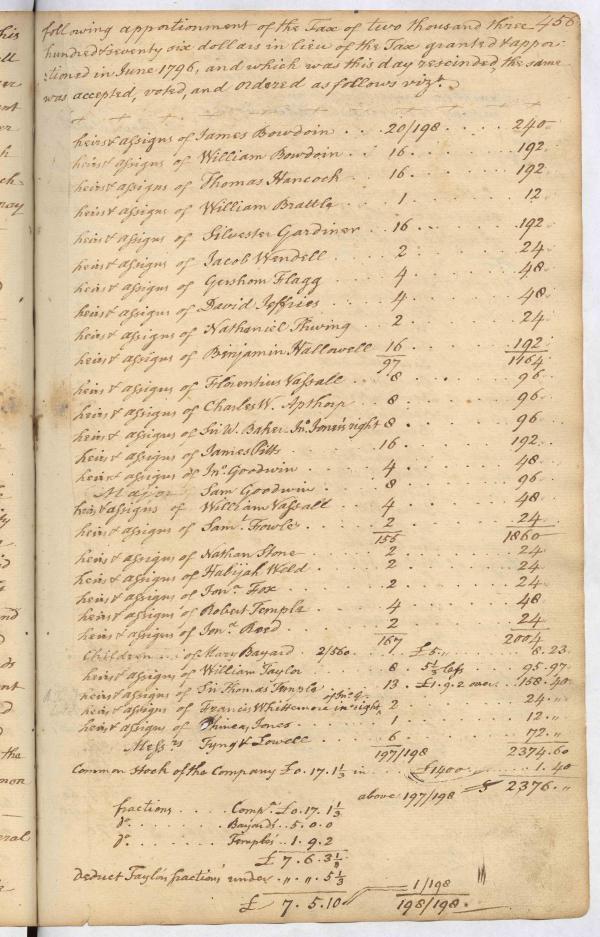 456
following apportionment of the Tax of two thousand three
hundred & seventy six dollars in lieu of the Tax granted & appor-
tioned in June 1796, and which was this day rescinded, the same
was accepted, voted, and ordered as follows vizt.
heirs & assigns of James Bowdoin . . 20/198 . . . . 240
heirs & assigns of William Bowdoin . . 16 . . . . 192
heirs & assigns of Thomas Hancock . . 16 . . . . 192
heirs & assigns of William Brattle . . 1 . . . . 12
heirs & assigns of Silvester Gardiner . . 16 . . . . 192
heirs & assigns of Jacob Wendell . . 2 . . . . 24
heirs & assigns of Gershom Flagg . . 4 . . . . 48
heirs & assigns of David Jeffries . . 4 . . . . 48
heirs & assigns of Nathaniel Thwing . . 2 . . . . 24
heirs & assigns of Benjamin Hallowell 16 . . . . 192
97 1164
heirs & assigns of Florentius Vassall . . 8 . . . . 96
heirs & assigns of Charles W. Apthorp . . 8 . . . . 96
heirs & assigns of Sr. W. Baker Jno. Jones's right 8 . . . . 96
heirs & assigns of James Pitts . . 16 . . . . 192
heirs & assigns of Jno. Goodwin . . 4 . . . . 48
Major Sam Goodwin . . 8 . . . . 96
heirs & assigns of William Vassall . . 4 . . . . 48
heirs & assigns of Saml. Fowler . . 2 . . . . 24
155 1860
heirs & assigns of Nathan Stone . . 2 . . . . 24
heirs & assigns of Habijah Weld . . 2 . . . . 24
heirs & assigns of Jona. Fox . . 2 . . . . 24
heirs & assigns of Robert Temple . . 4 . . . . 48
heirs & assigns of Jona. Reed . . 2 . . . . 24
167 2004
Children . . of Mary Bayard . 2/560 . 1 . £5 ,, . . 8.23
heirs & assigns of William Taylor . . 8 . 5 1/3 less . . 95.97
heirs & assigns of Sir Thomas Temple . . 13 . £1.9.2 over . 158.40
heirs & assigns of Francis Whittemore in right 2 . . . . 24 ,,
heirs & assigns of Phineas Jones . . 1 . . . . 12 ,,
Messrs Tyng & Lowell . . 6 . . . . 72 ,,
197/198 2374.60
Common Stock of the Company £0.17.1 1/3 in £1400 . . . 1.40
above 197/198 = $ 2376 ,,
fractions . . . . Compy. £0.17.1 1/3
do . . . . . Bayard's . . 5.0.0
do . . . . . Temple's . . 1.9.2
£ 7.6.3 1/3
Deduct Taylor's fractions under . ,, . ,, . 5 1/3
£ 7.5.10 1/198
198/198